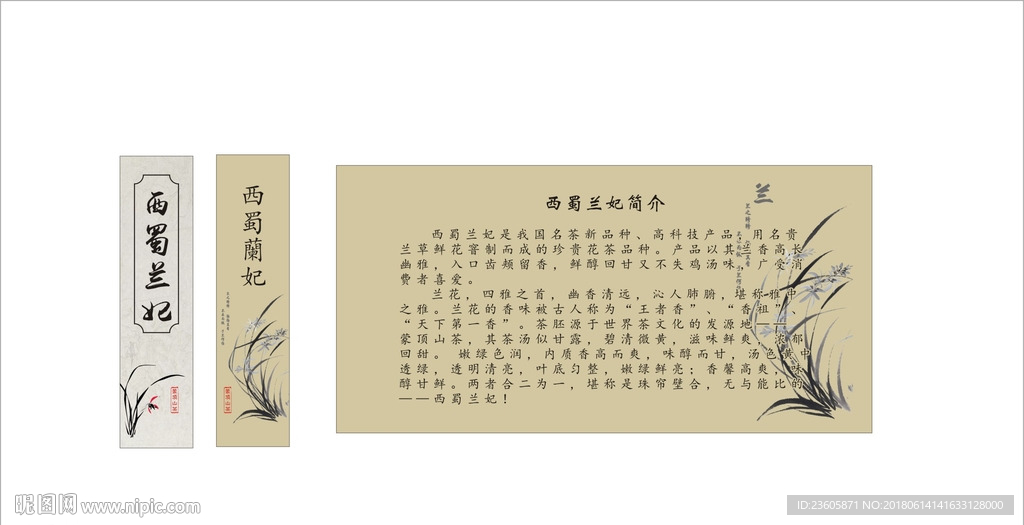 西蜀兰妃
西蜀蘭妃
西蜀兰妃简介
兰
西蜀兰妃是我国名茶新品种、高科技产品，用名贵
兰草鲜花窨制而成的珍贵花茶品种。产品以其兰香高长
幽雅，入口齿颊留香，鲜醇回甘又不失鸡汤味，广受消
费者喜爱。
兰花，四雅之首，幽香清远，沁人肺腑，堪称雅中
之雅。兰花的香味被古人称为“王者香”、“香祖”、
“天下第一香”。茶胚源于世界茶文化的发源地——
蒙顶山茶，其茶汤似甘露，碧清微黄，滋味鲜爽，浓郁
回甜。 嫩绿色润，内质香高而爽，味醇而甘，汤色黄中
透绿，透明清亮，叶底匀整，嫩绿鲜亮；香馨高爽，味
醇甘鲜。两者合二为一，堪称是珠帘壁合，无与能比的
——西蜀兰妃！
昵图网 www.nipic.com
ID:23605871 NO:20180614141633128000